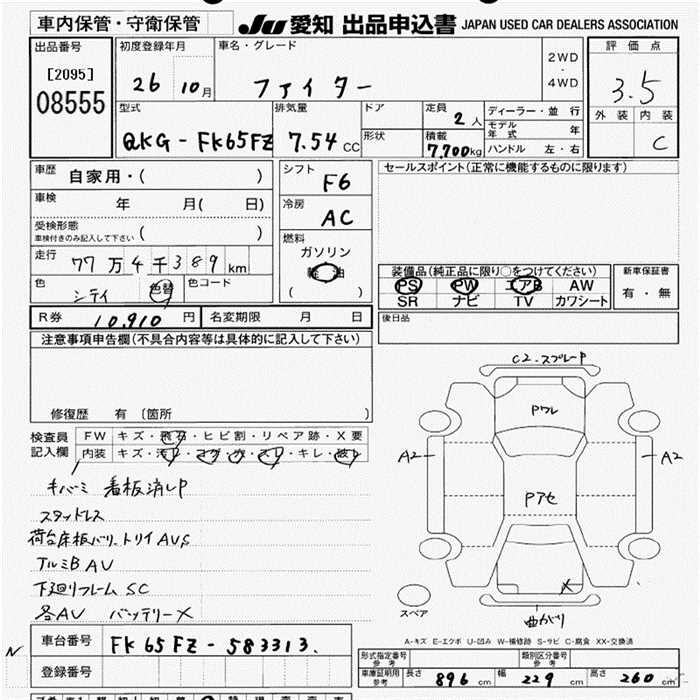 車内保管・守衛保管
JU 愛知 出品申込書 JAPAN USED CAR DEALERS ASSOCIATION
出品番号
[2095]
08555
初度登録年月
26 10月
車名・グレード
ファイター
2WD
・
4WD
評価点
3.5
外装 内装
C
型式
QKG-FK65FZ
排気量
7.54 CC
ドア
形状
定員
2人
積載
7,700kg
ディーラー・並行
モデル年式 年
ハンドル 左・右
車歴
自家用・( )
車検
年 月( 日)
受検形態
車検付きのみ記入して下さい ( )
走行
77万4千389km
色
シティ
色替
色コード
シフト
F6
冷房
AC
燃料
ガソリン
軽油
( )
セールスポイント(正常に機能するものに限ります)
装備品(純正品に限り○をつけてください)
PS PW エアB AW
SR ナビ TV カワシート
新車保証書
有・無
後日品
R券 10,910円
名変期限 月 日
注意事項申告欄(不具合内容等は具体的に記入して下さい)
修復歴 有 〔箇所 〕
検査員
記入欄
FW キズ・飛石・ヒビ割・リペア跡・X要
内装 キズ・汚れ・コゲ・穴・スレ・キレ・破れ
キバミ 看板済しP
スタッドレス
荷台床板バリ、トライAVS
アルミB AV
下廻りフレームSC
各AV バッテリーX
C2-スプレーP
Pワレ
A2
A2
Pアセ
X
曲がり
スペア
A-キズ E-エクボ U-凹み W-補修跡 S-サビ C-腐食 XX-交換済
N
車台番号 FK65FZ-583313.
登録番号
形式指定番号
参考
類別区分番号
参考
車庫証明用
参考
長さ 896cm 幅 229cm 高さ 260cm